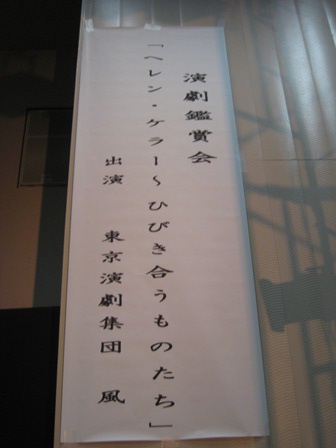 演劇鑑賞会
「ヘレン・ケラー～ひびき合うものたち」
出演　東京演劇集団　風